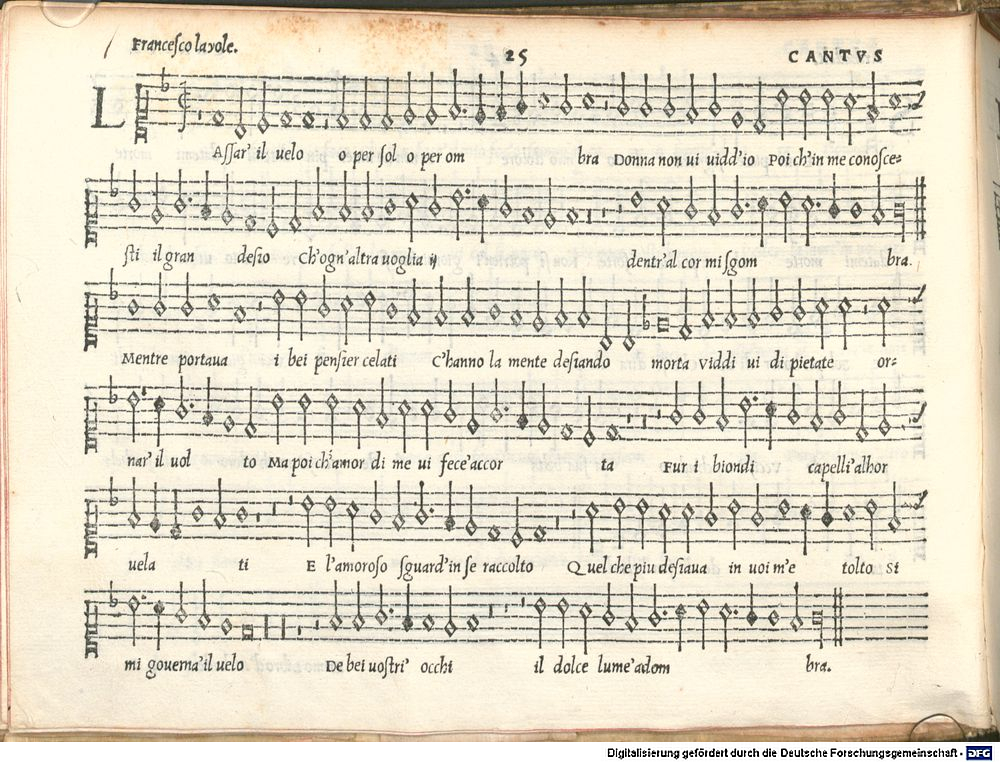 Francesco layole.
25
CANTVS
LAssar' il uelo o per sol o per om bra Donna non ui uidd'io Poi ch'in me conosce-
sti il gran desio Ch'ogn'altra uoglia ij dentr'al cor mi sgom bra.
Mentre portaua i bei pensier celati C'hanno la mente desiando morta viddi ui di pietate or-
nar' il uol to Ma poi ch'amor di me ui fece'accor ta Fur i biondi capelli'alhor
uela ti E l'amoroso sguard'in se raccolto Quel che piu desiaua in uoi m'e tolto Si
mi gouerna'il uelo De bei uostri' occhi il dolce lume'adom bra.
Digitalisierung gefördert durch die Deutsche Forschungsgemeinschaft - DFG